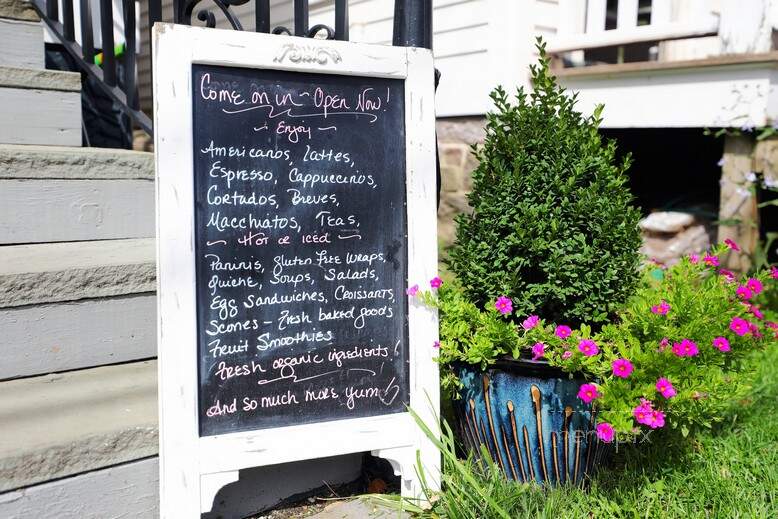 Come on in - Open Now!
~ Enjoy ~
Americanos, Lattes,
Espresso, Cappuccinos,
Cortados, Breves,
Macchiatos, Teas,
~ Hot or iced ~
Paninis, Gluten Free Wraps,
Quiche, Soups, Salads,
Egg Sandwiches, Croissants,
Scones - Fresh baked goods
Fruit Smoothies
Fresh organic ingredients!
And so much more yum
menupix